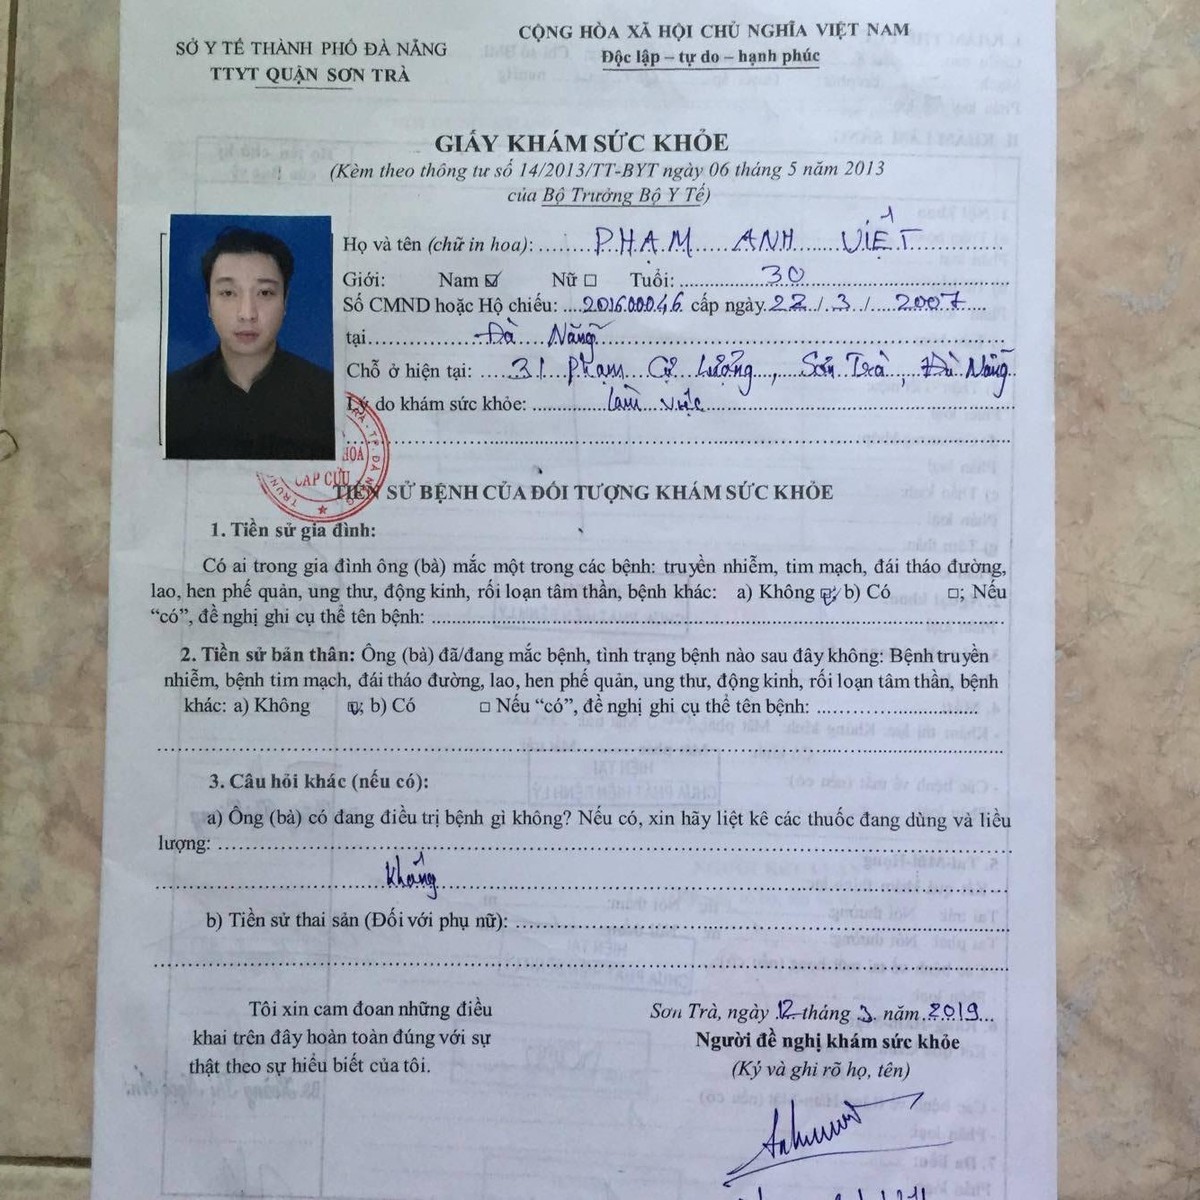 SỞ Y TẾ THÀNH PHỐ ĐÀ NẴNG
TTYT QUẬN SƠN TRÀ
CỘNG HÒA XÃ HỘI CHỦ NGHĨA VIỆT NAM
Độc lập – tự do – hạnh phúc
GIẤY KHÁM SỨC KHỎE
(Kèm theo thông tư số 14/2013/TT-BYT ngày 06 tháng 5 năm 2013
của Bộ Trưởng Bộ Y Tế)
Họ và tên (chữ in hoa): PHẠM ANH VIỆT
Giới: Nam ☑ Nữ □ Tuổi: 30
Số CMND hoặc Hộ chiếu: 201600046 cấp ngày 22/3/2007
tại Đà Nẵng
Chỗ ở hiện tại: 31 Phạm Cự Lượng, Sơn Trà, Đà Nẵng
Lý do khám sức khỏe: làm việc
TP. ĐÀ
CẤP CỨU
TIỀN SỬ BỆNH CỦA ĐỐI TƯỢNG KHÁM SỨC KHỎE
1. Tiền sử gia đình:
Có ai trong gia đình ông (bà) mắc một trong các bệnh: truyền nhiễm, tim mạch, đái tháo đường,
lao, hen phế quản, ung thư, động kinh, rối loạn tâm thần, bệnh khác: a) Không ☑; b) Có □; Nếu
“có”, đề nghị ghi cụ thể tên bệnh:
2. Tiền sử bản thân: Ông (bà) đã/đang mắc bệnh, tình trạng bệnh nào sau đây không: Bệnh truyền
nhiễm, bệnh tim mạch, đái tháo đường, lao, hen phế quản, ung thư, động kinh, rối loạn tâm thần, bệnh
khác: a) Không ☑; b) Có □ Nếu “có”, đề nghị ghi cụ thể tên bệnh:
3. Câu hỏi khác (nếu có):
a) Ông (bà) có đang điều trị bệnh gì không? Nếu có, xin hãy liệt kê các thuốc đang dùng và liều
lượng:
Không
b) Tiền sử thai sản (Đối với phụ nữ):
Tôi xin cam đoan những điều
khai trên đây hoàn toàn đúng với sự
thật theo sự hiểu biết của tôi.
Sơn Trà, ngày 12 tháng 3 năm 2019
Người đề nghị khám sức khỏe
(Ký và ghi rõ họ, tên)